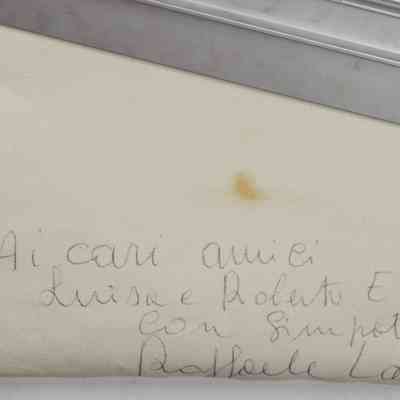 Ai cari amici
Luisa e Roberto E
con simpat
Raffaele La